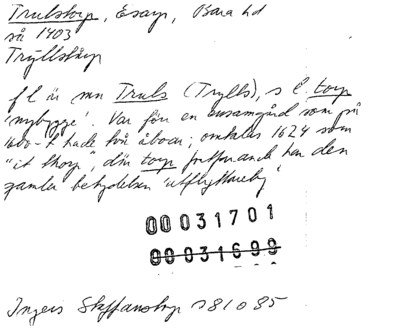 Trulstorp, Esarp, Bara hd
så 1403
Tryllstorp
f l är mn Truls (Trylls), s l torp
'nybygge'. Var förr en ensamgård som på
1600-t hade två åboar; omtalas 1624 som
"it thorp", där torp fortfarande har den
gamla betydelsen 'utflyttareby'
00031701
00031699
Ingers Staffanstorp s81 o 85